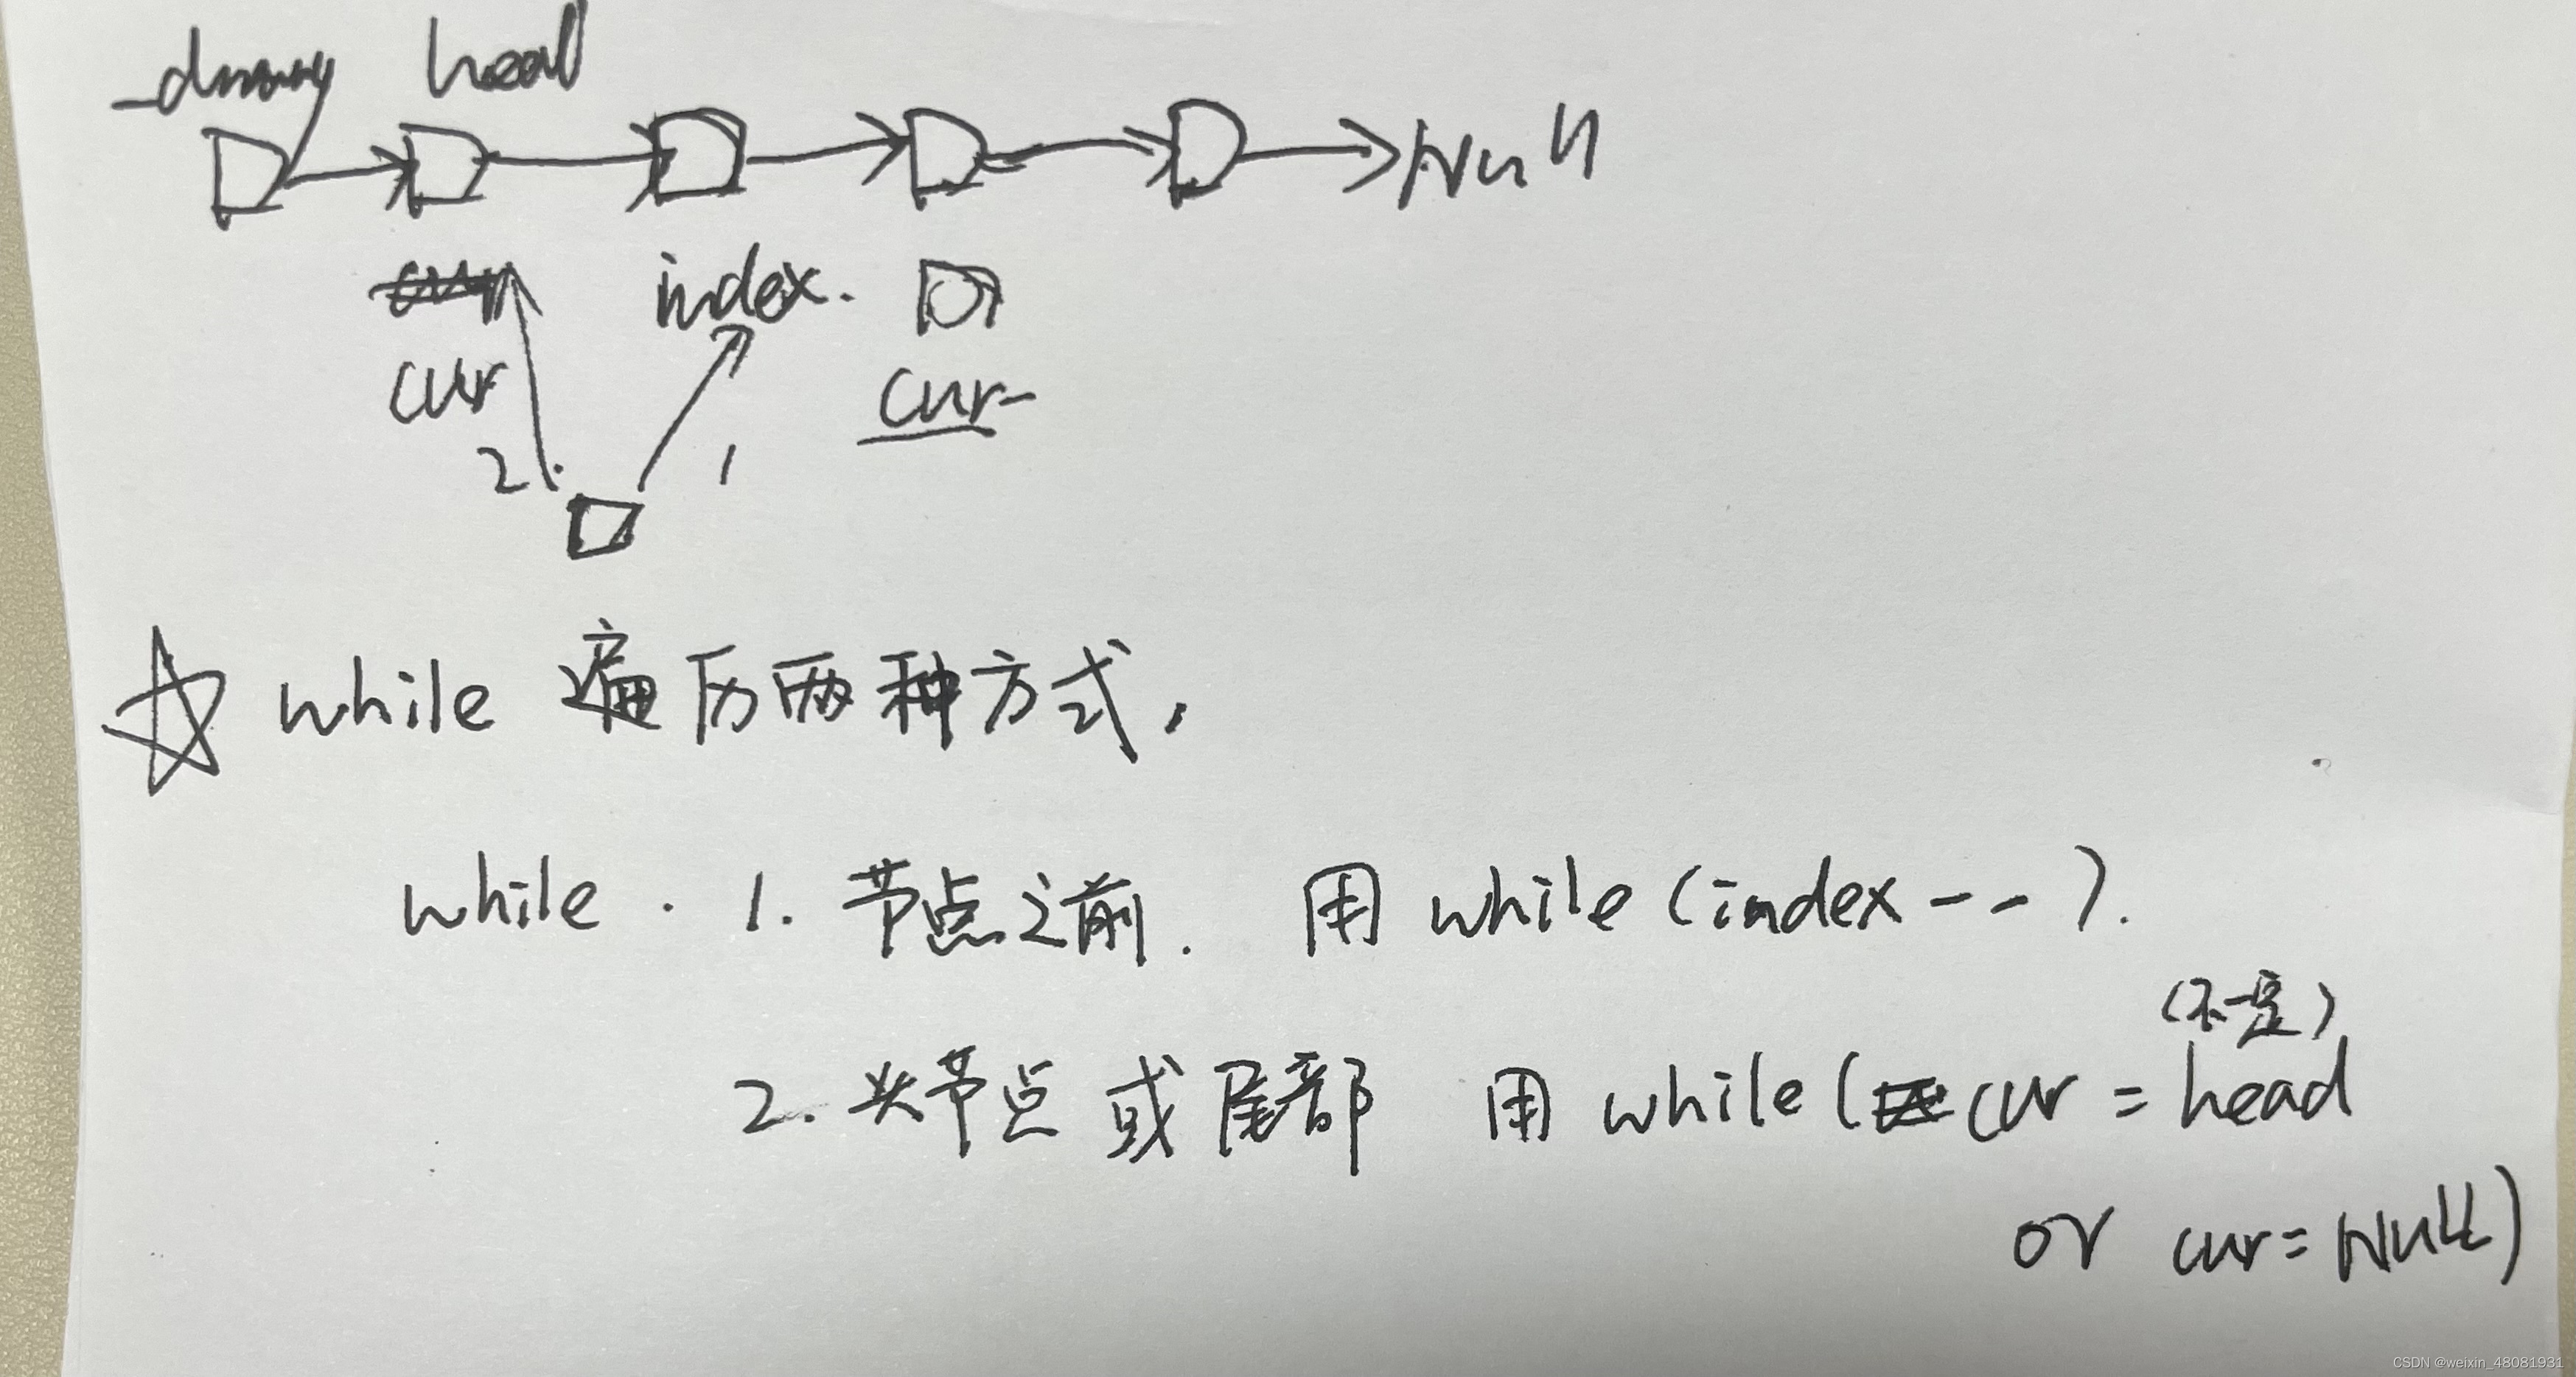 _dummy head
Null
index.
cur cur
2. 1
while 遍历两种方式,
while . 1. 节点之前. 用 while (index--).
(不一定)
2. 头节点 或 尾部 用 while ( cur = head
or cur = Null)
CSDN @weixin_48081931